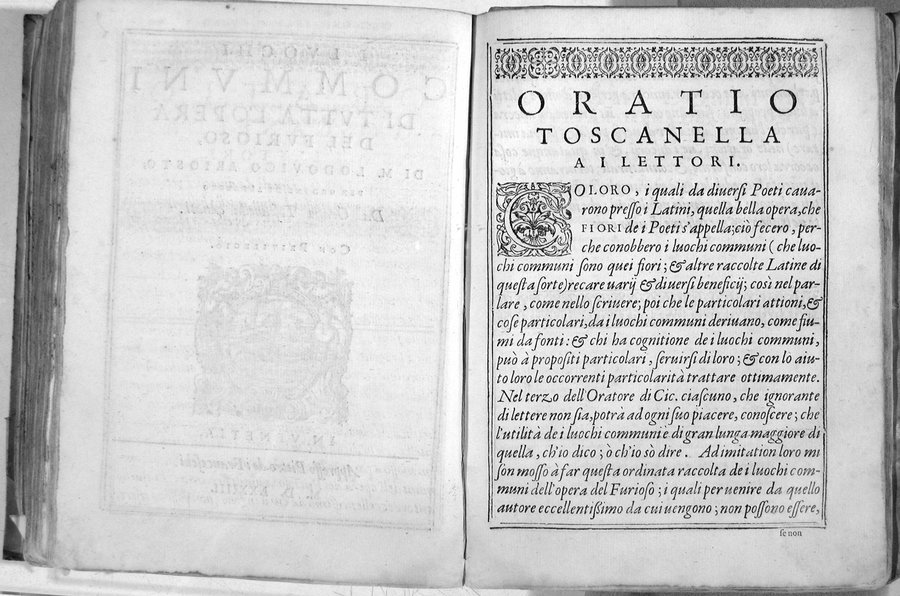 ORATIO
TOSCANELLA
A I LETTORI.
COLORO, i quali da diuersi Poeti caua
rono presso i Latini, quella bella opera, che
FIORI de i Poeti s'appella; ciò fecero, per-
che conobbero i luochi communi (che luo-
chi communi sono quei fiori; & altre raccolte Latine di
questa sorte) recare uarij & diuersi beneficij; così nel par-
lare, come nello scriuere; poi che le particolari attioni, &
cose particolari, da i luochi communi deriuano, come fiu-
mi da fonti: & chi ha cognitione de i luochi communi,
può à propositi particolari, seruirsi di loro; & con lo aiu-
to loro le occorrenti particolarità trattare ottimamente.
Nel terzo dell'Oratore di Cic. ciascuno, che ignorante
di lettere non sia, potrà ad ogni suo piacere, conoscere; che
l'utilità de i luochi communi è di gran lunga maggiore di
quella, ch'io dico; ò ch'io sò dire. Ad imitation loro mi
son mosso à far questa ordinata raccolta de i luochi com-
muni dell'opera del Furioso; i quali per uenire da quello
autore eccellentissimo da cui uengono; non possono essere,
se non